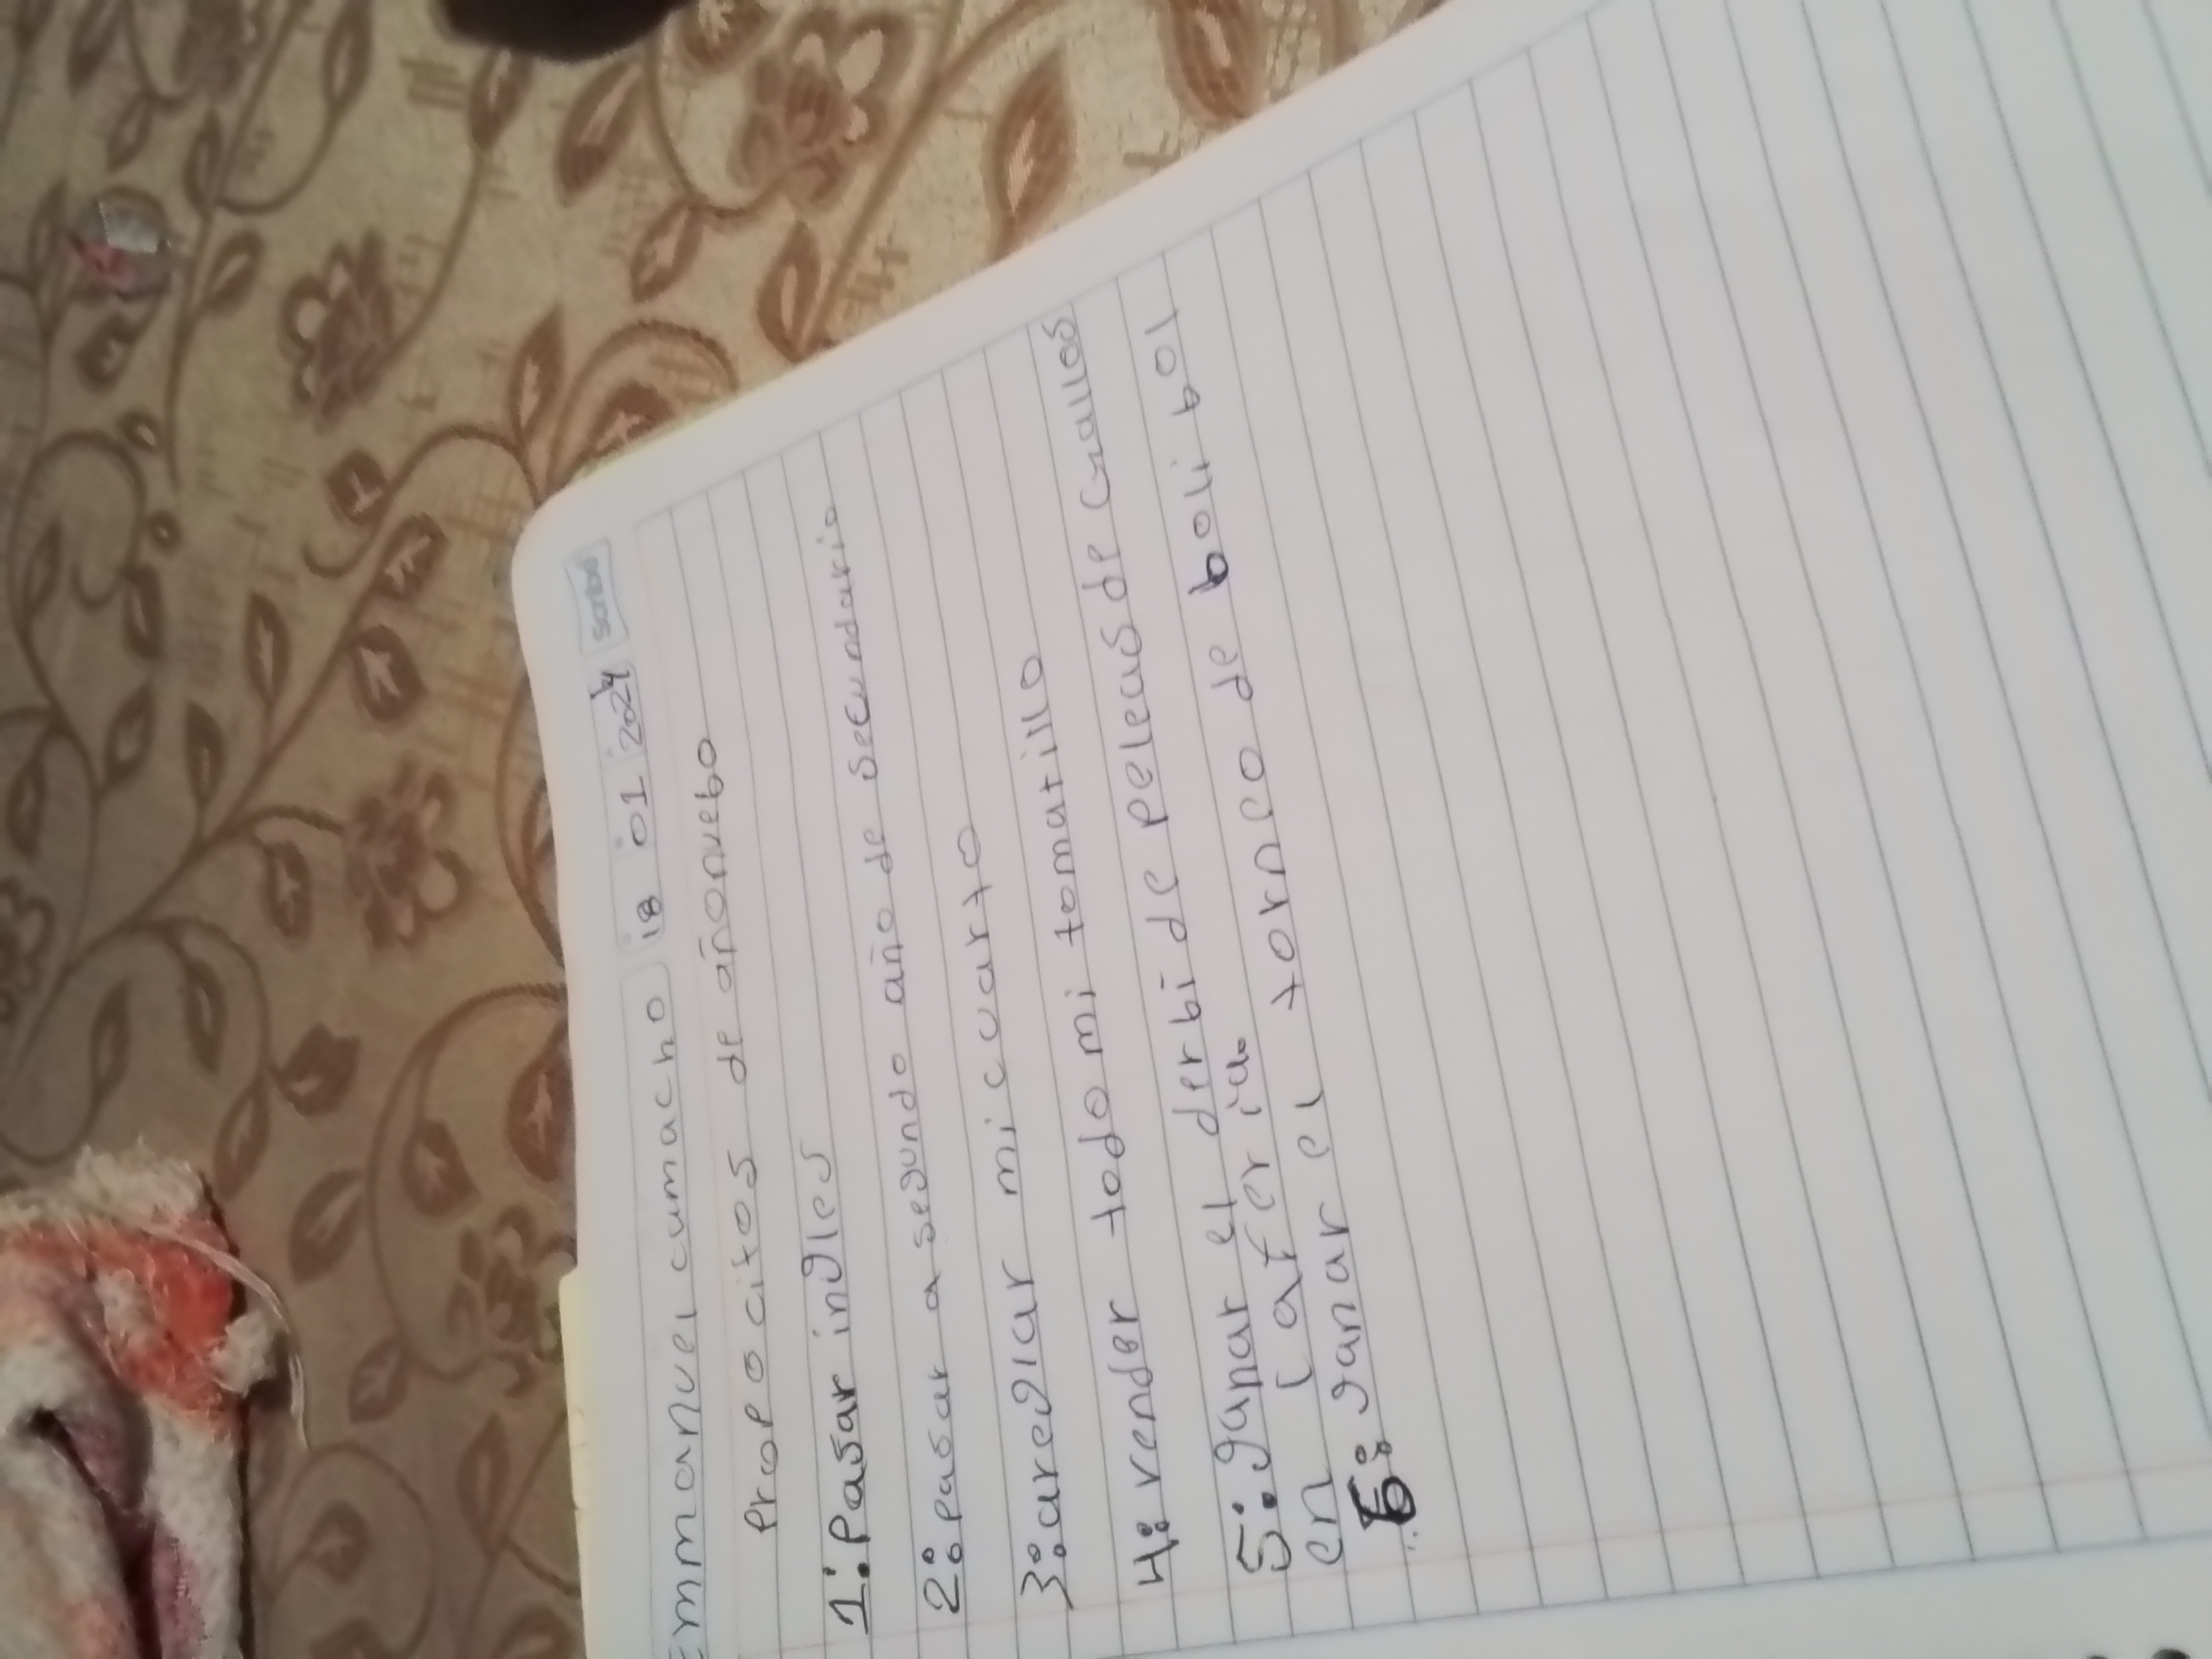 Emmanuel camacho 18 01 2024 Scribe
Propocitos de añonuebo
1: Pasar ingles
2: pasar a segundo año de secundaria
3: areglar mi cuarto
4: vender todo mi tomatillo
5: ganar el derbi de peleas de Gallos
en Caferia
6: ganar el torneo de boli bol